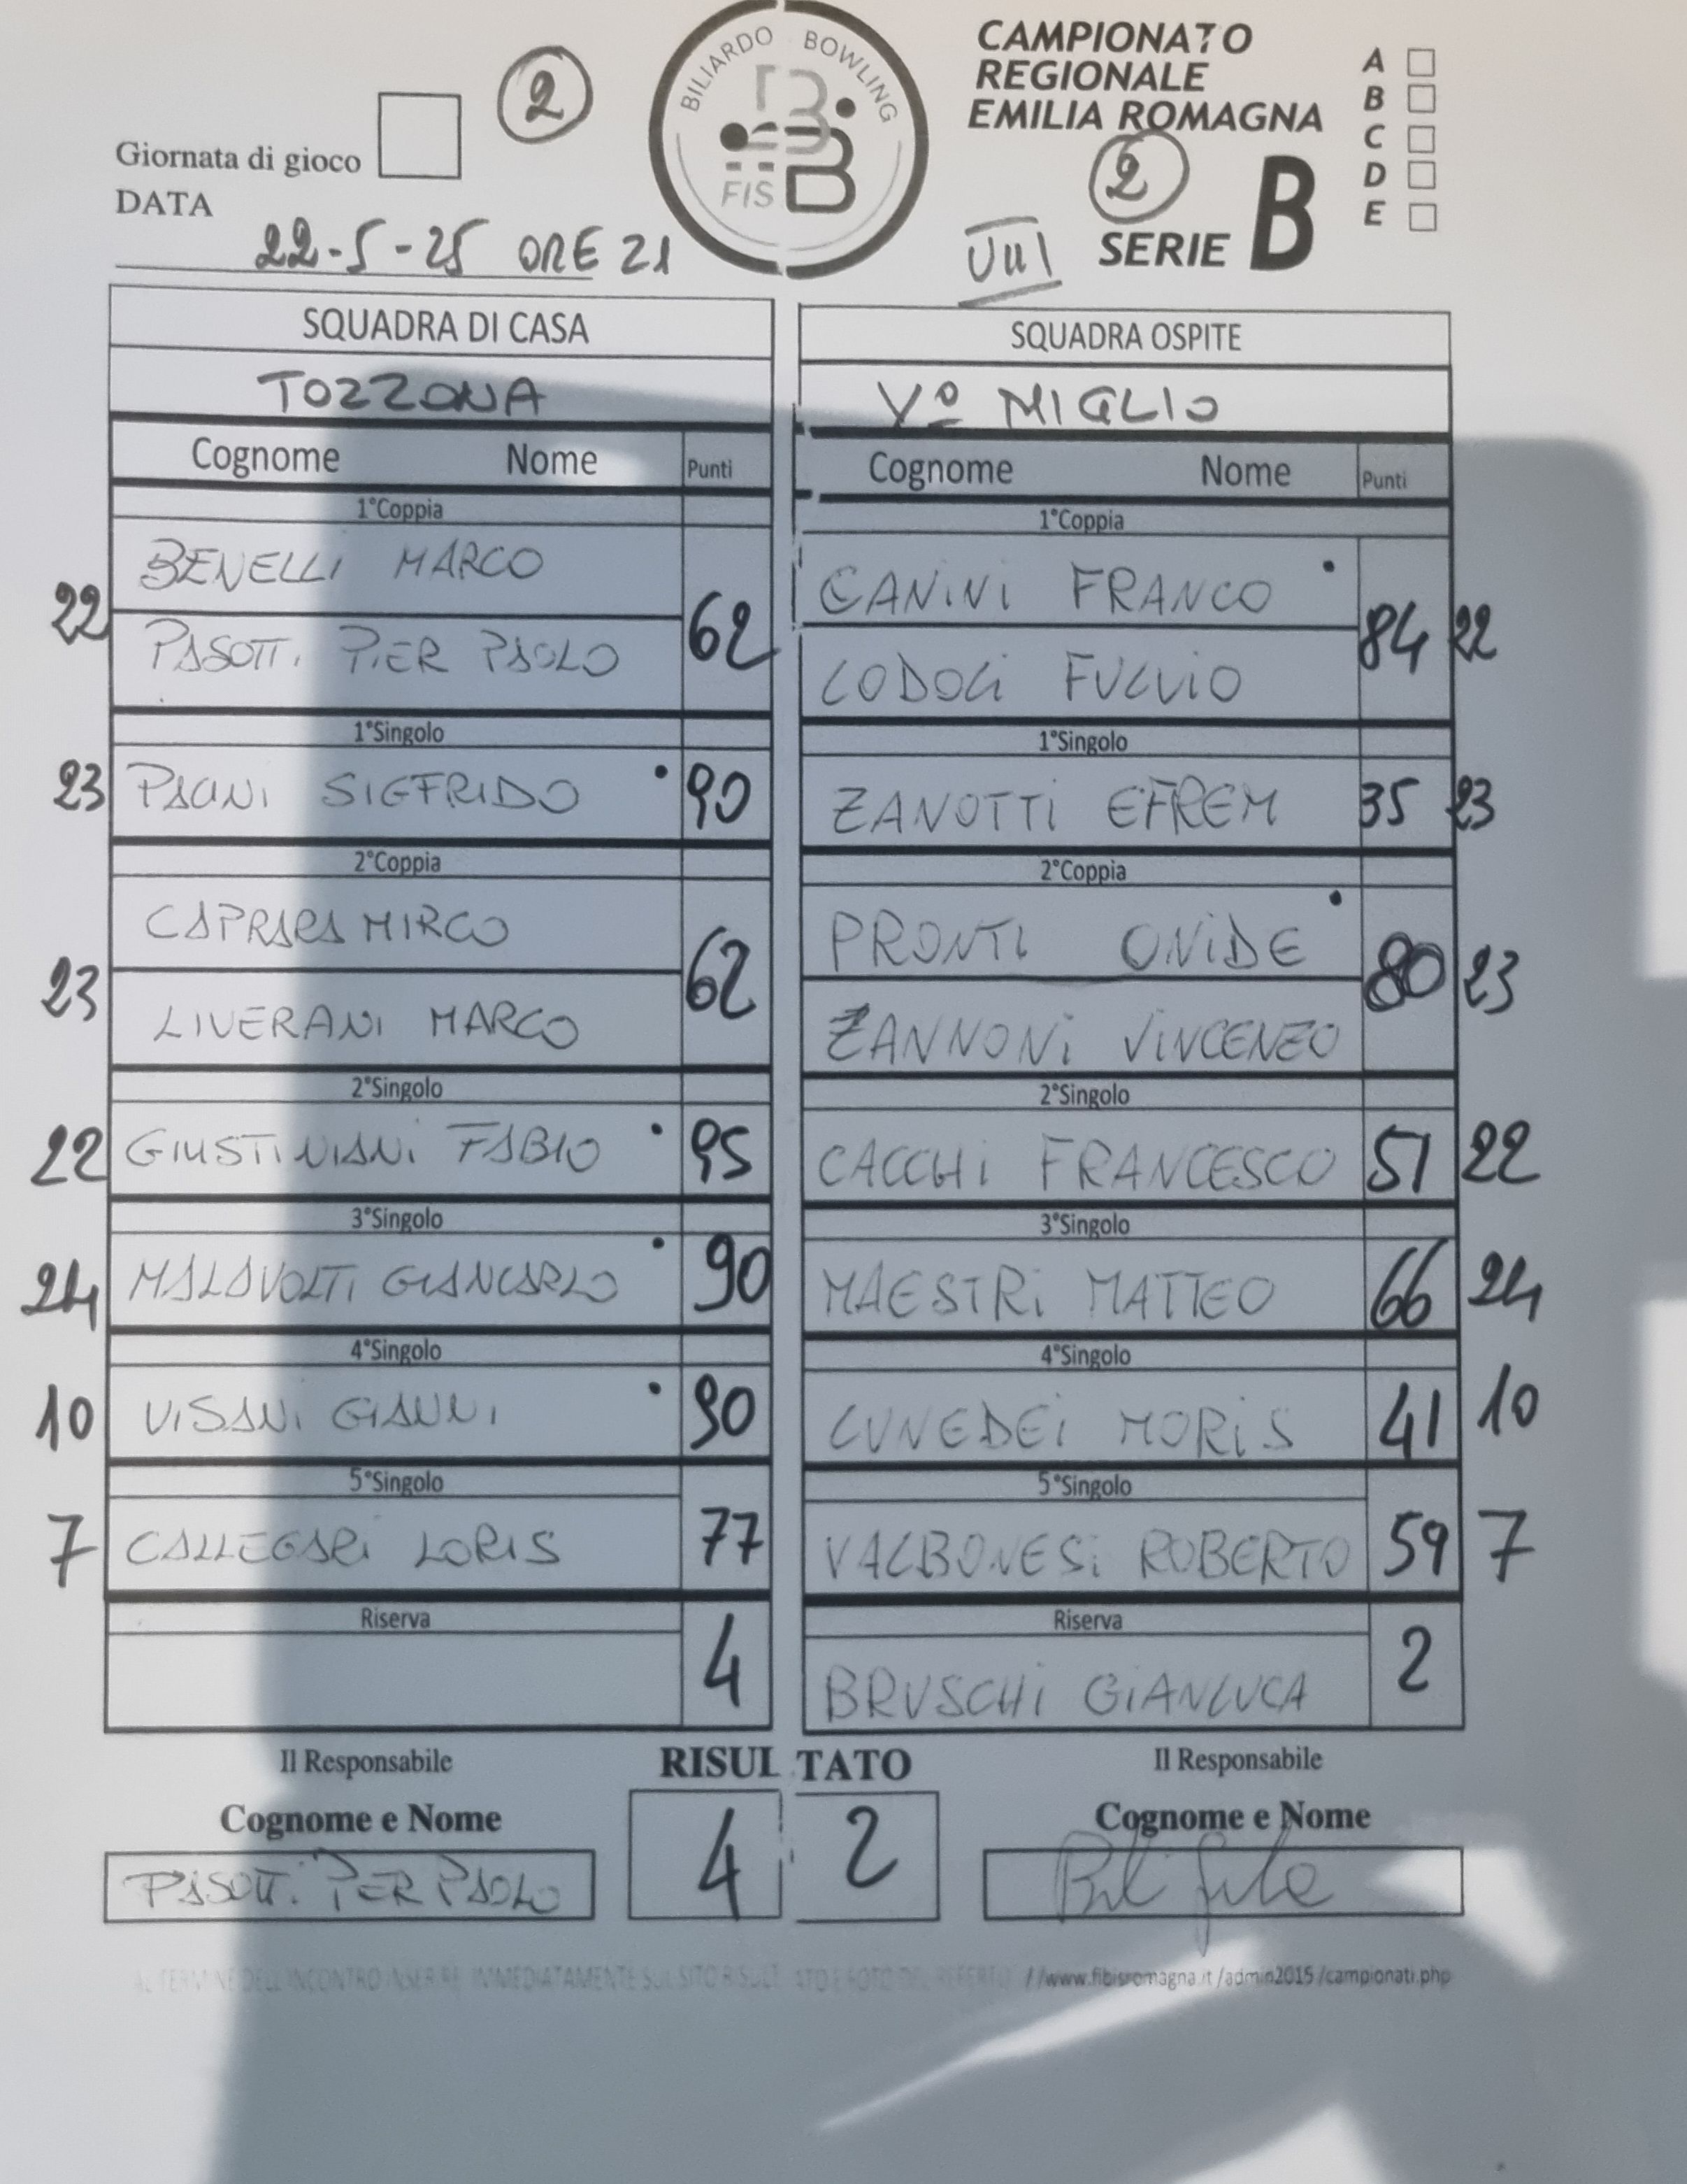 BILIARDO BOWLING
FISBB
CAMPIONATO
REGIONALE
EMILIA ROMAGNA
A
B
C
D
E
2
SERIE B
VIII
2
Giornata di gioco
DATA
22-5-25 ORE 21
SQUADRA DI CASA
TOZZONA
Cognome Nome Punti
1°Coppia
BENELLI MARCO
22 62
PASOTTI PIER PAOLO
1°Singolo
23 PAGNI SIGFRIDO • 90
2°Coppia
CAPRARA MIRCO
23 62
LIVERANI MARCO
2°Singolo
22 GIUSTINIANI FABIO • 95
3°Singolo
24 MALAVOLTI GIANCARLO • 90
4°Singolo
10 VISANI GIANNI • 90
5°Singolo
7 CALLEGARI LORIS 77
Riserva
4
SQUADRA OSPITE
V° MIGLIO
Cognome Nome Punti
1°Coppia
CANINI FRANCO •
84 22
LODOLI FULVIO
1°Singolo
ZANOTTI EFREM 35 23
2°Coppia
PRONTI ONIDE •
80 23
ZANNONI VINCENZO
2°Singolo
CACCHI FRANCESCO 51 22
3°Singolo
MAESTRI MATTEO 66 24
4°Singolo
LUNEDEI MORIS 41 10
5°Singolo
VALBONESI ROBERTO 59 7
Riserva
BRUSCHI GIANLUCA 2
Il Responsabile
Cognome e Nome
PASOTTI PIER PAOLO
RISULTATO
4 2
Il Responsabile
Cognome e Nome
AL TERMINE DELL'INCONTRO INSERIRE IMMEDIATAMENTE SUL SITO RISULTATO E FOTO DEL REFERTO //www.fibisromagna.it/admin2015/campionati.php